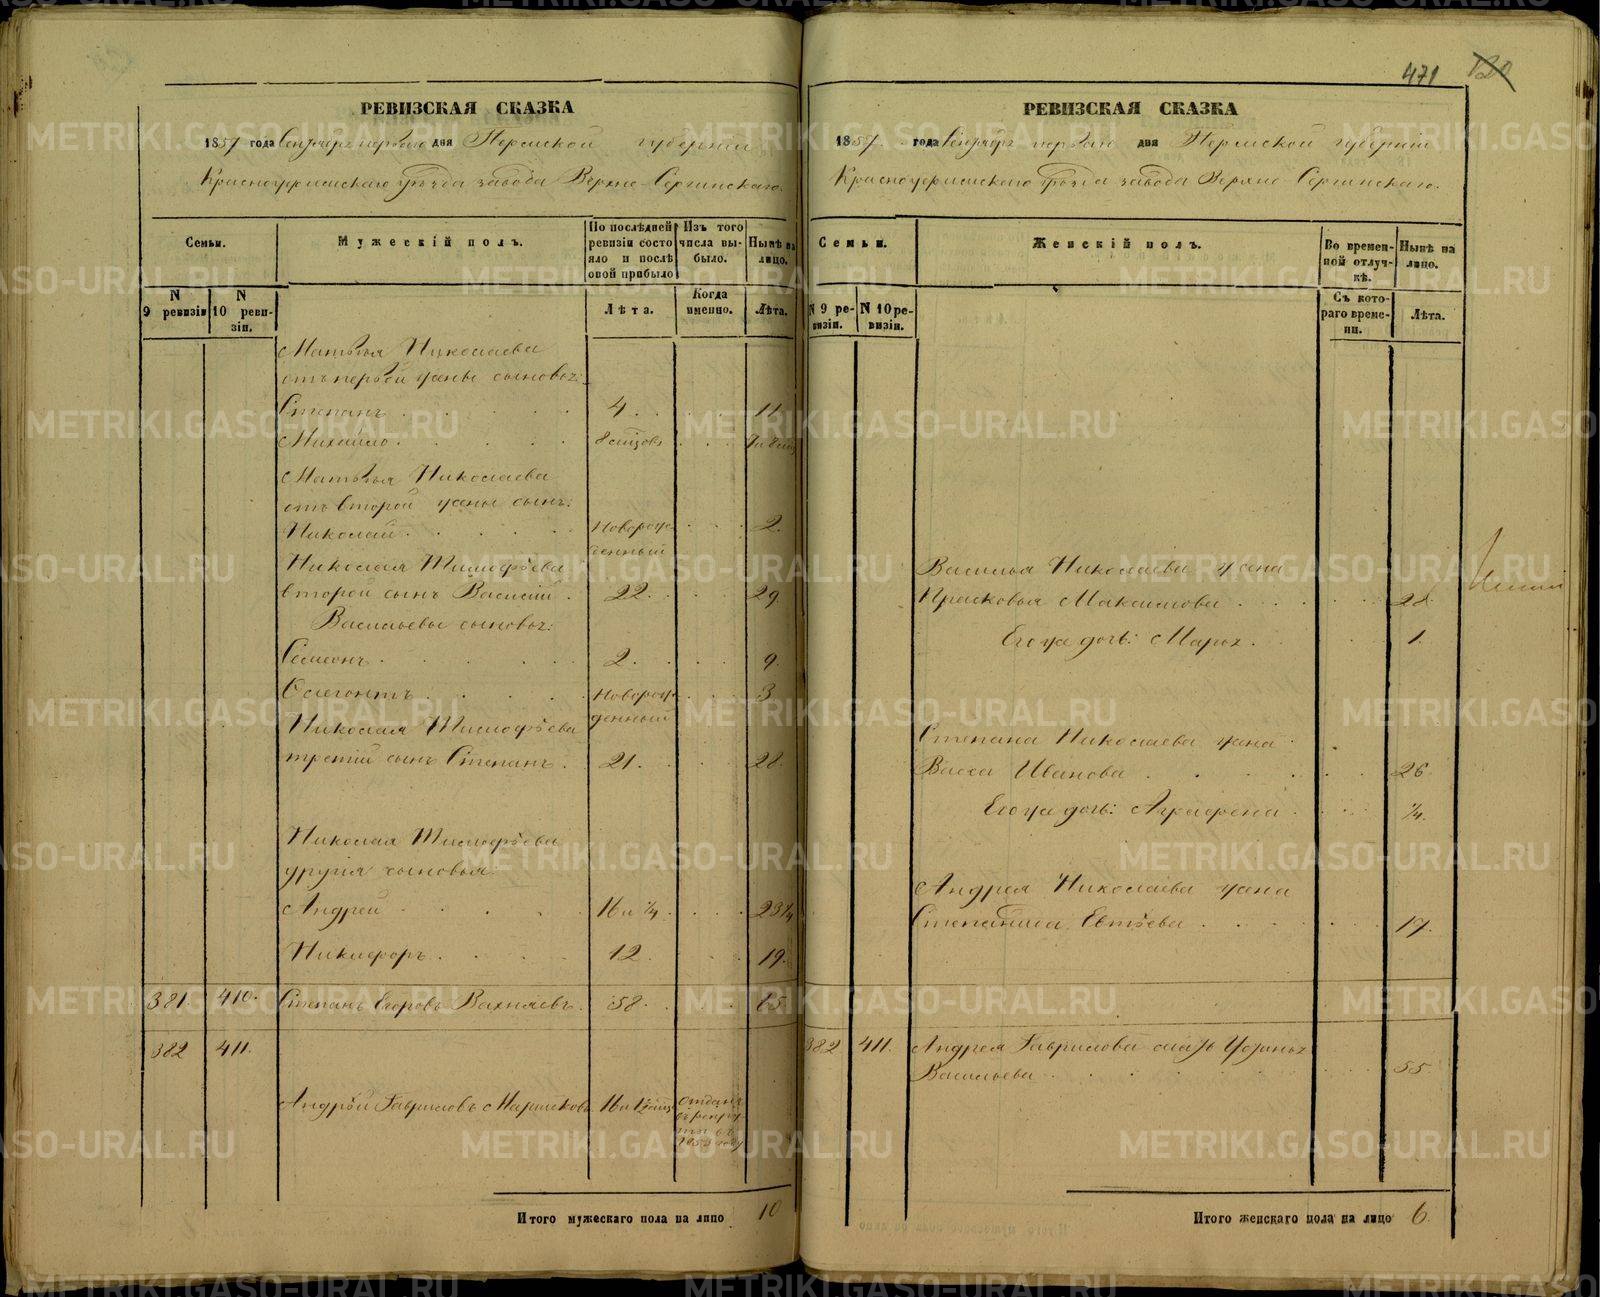 РЕВИЗСКАЯ СКАЗКА
1857 года Сентября первого дня Пермской губернии
Красноуфимскаго уѣзда завода Верхне-Сергинскаго.
Семьи.
Мужескій полъ.
По послѣдней ревизіи состояло и послѣ оной прибыло
Изъ того числа выбыло.
Нынѣ на лицо.
N 9 ревизіи
N 10 ревизіи.
Лѣта.
Когда именно.
Лѣта.
Матвѣя Николаева
отъ первой жены сыновья:
Степанъ 4. 11.
Михайло 8 мѣсяцовъ
Матвѣя Николаева
отъ второй жены сынъ:
Николай Новорожденный 2.
Николая Тимофѣева
второй сынъ Василій 22. 29.
Васильевы сыновья:
Семенъ 2. 9.
Новорожденный 3
Николая Тимофѣева
третій сынъ Степанъ 21. 28.
Николая Тимофѣева
другія сыновья
Андрей 16 и 1/4 23 1/4
Никифоръ 12 19.
381. 410. Степанъ Егоровъ 58. 65.
382 411.
Андрей Гавриловъ отданъ въ рекруты въ 1853 году
Итого мужескаго пола на лицо 10
471 120
РЕВИЗСКАЯ СКАЗКА
1857 года Сентября первого дня Пермской губерніи
Красноуфимскаго уѣзда завода Верхне-Сергинскаго.
Семьи.
Женскій полъ.
Во временной отлучкѣ.
Нынѣ на лицо.
N 9 ревизіи.
N 10 ревизіи.
Съ котораго времени.
Лѣта.
Василья Николаева жена
Прасковья Максимова 28
Его же дочь: Марья 1.
Степана Николаева жена
Васса Иванова 26
Его же дочь: Аграфена 1/4.
Андрея Николаева жена
Степанида Евтѣева 17.
382 411. Андрея Гаврилова мать Устинья
Васильева 55.
Итого женскаго пола на лицо 6.
METRIKI.GASO-URAL.RU